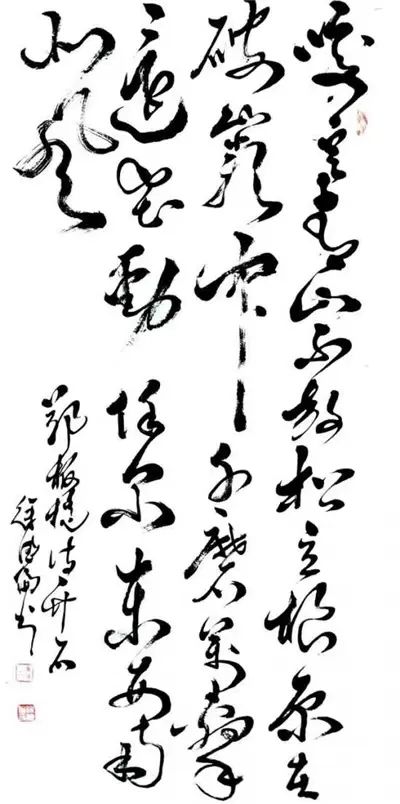 咬定青山不放松立根原在
破巖中千磨萬擊
還坚勁任尔东西南
北风
郑板桥诗竹石
徐 书